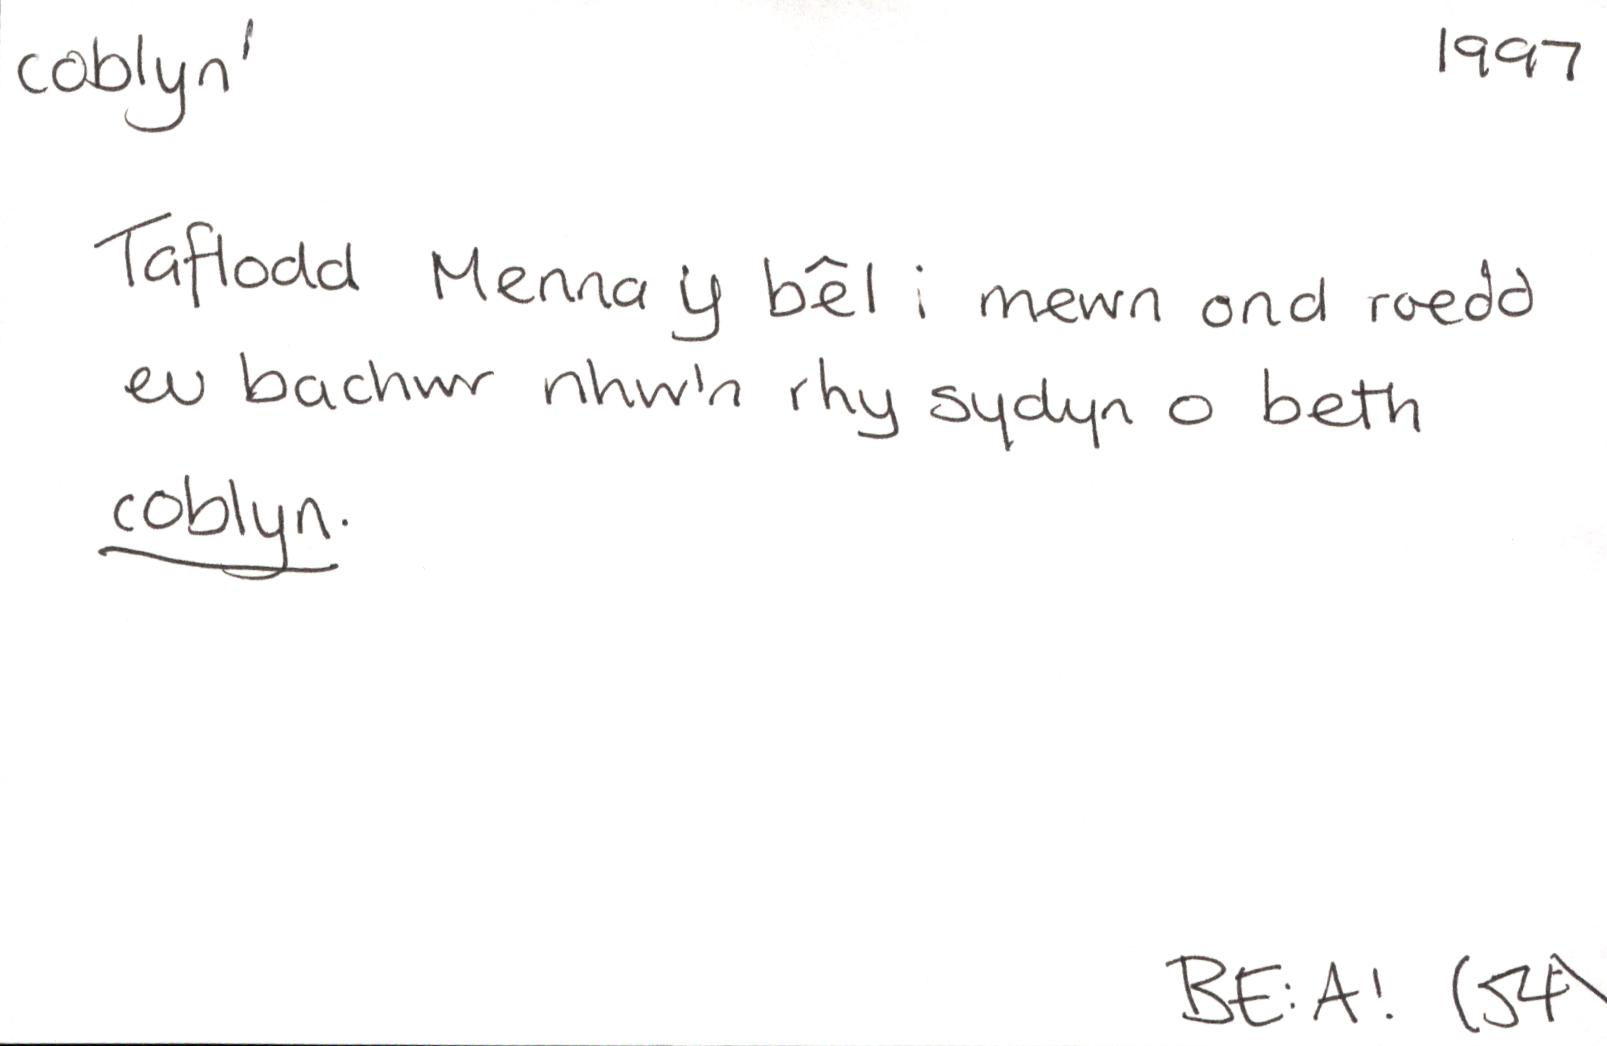 coblyn' 1997
Taflodd Menna y bêl i mewn ond roedd
eu bachwr nhw'n rhy sydyn o beth
coblyn.
BE: A! (54)